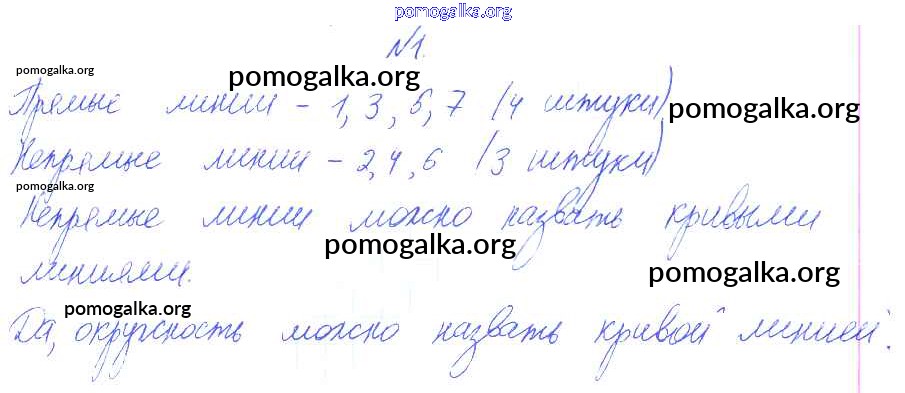 pomogalka.org
№1.
pomogalka.org
pomogalka.org
Прямые линии - 1, 3, 5, 7 (4 штуки)
pomogalka.org
Непрямые линии - 2, 4, 6 (3 штуки)
pomogalka.org
Непрямые линии можно назвать кривыми
pomogalka.org
линиями.
pomogalka.org
pomogalka.org
Да, окружность можно назвать кривой линией.